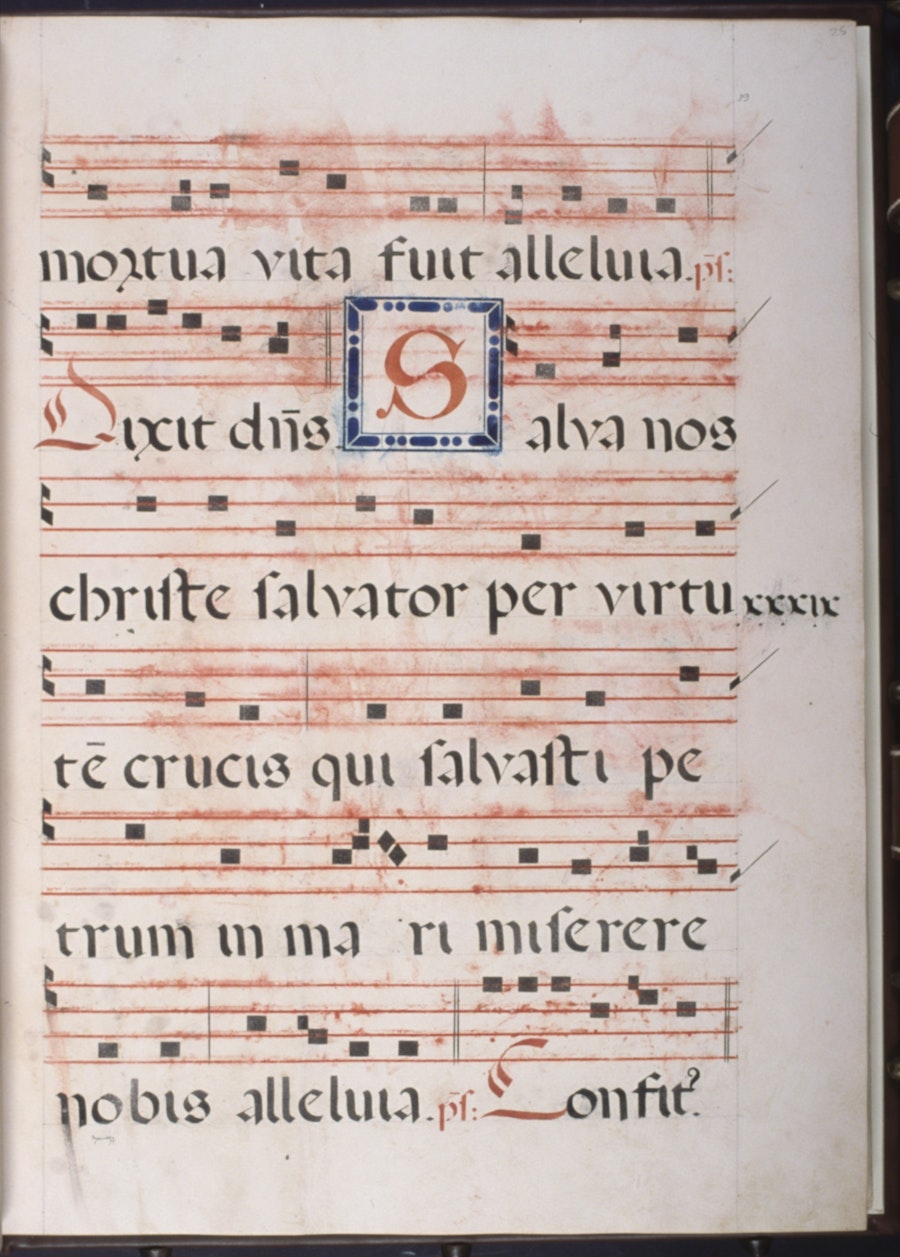 25
39
mortua vita fuit alleluia. p̄s:
Dixit dn̄s. Salva nos
christe salvator per virtu xxxix
tē crucis qui salvasti pe
trum in ma ri miserere
nobis alleluia. p̄s: Confit̉.